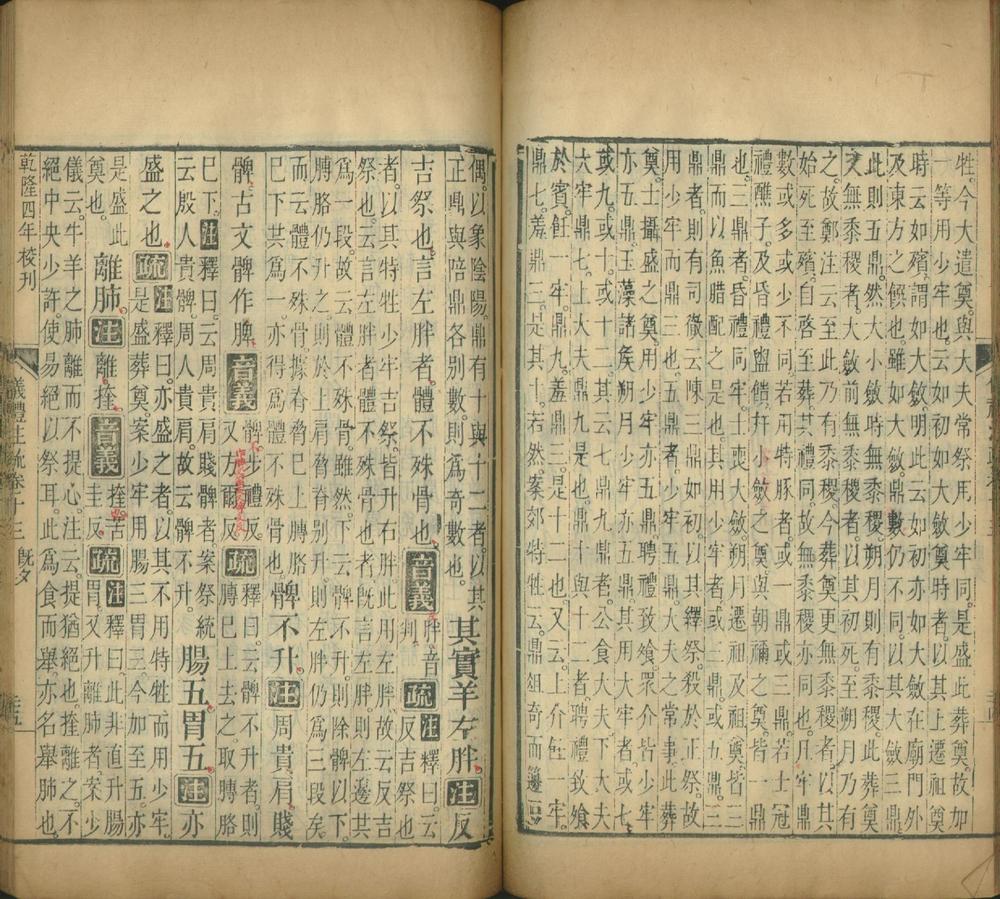 牲。今大遣奠。與大夫常祭用少牢同。是盛此葬奠。故加
一等用少牢也。云如初。如大斂奠時者。以其上遷祖奠
時云如殯。謂如大斂。明此云如初。亦如大斂在廟門外
及東方之饌也。雖如大斂。鼎數仍不同。以其大斂三鼎。
此則五鼎。然大小斂時無黍稷。朔月則有黍稷。此葬奠
又無黍稷者。大斂前無黍稷者。以其初死。至朔月乃有
之。故鄭注云。至此乃有黍稷。今葬奠更無黍稷者。以其
始死至殯。自啓至葬。其禮同。故無黍稷亦同也。凡牢鼎
數或多或少不同。若用特豚者。或一鼎。或三鼎。若士冠
禮醮子。及昏禮盥饋。幷小斂之奠。與朝禰之奠。皆一鼎
也。三鼎者。昏禮同牢。士喪大斂。朔月遷祖及祖奠。皆三
鼎。而以魚腊配之是也。其用少牢者。或三鼎。或五鼎。三
鼎者。則有司徹云陳三鼎如初。以其繹祭殺於正祭。故
用少牢而鼎三也。五鼎者。少牢五鼎。大夫之常事。此葬
奠。士攝盛之奠。用少牢。亦五鼎。聘禮致飧眾介皆少牢
亦五鼎。玉藻諸矦朔月少牢五鼎。其用大牢者。或七
或九。或十。或十二。其云七鼎九鼎者。公食大夫下大夫
大牢鼎七。上大夫鼎九是也。鼎十與十二者。聘禮致飧
於賓。飪一牢。鼎九。羞鼎三。是其十二也。又云。上介飪一牢。
鼎七。羞鼎三。是其十。若然。案郊特牲云。鼎俎奇而籩豆
偶。以象陰陽。鼎有十與十二者。以其
正鼎與陪鼎各别數。則爲奇數也。其實羊左胖。注反
吉祭也。言左胖者。體不殊骨也。音義胖。音判。疏注釋曰。云反吉祭也
者。以其特牲少牢吉祭。皆升右胖。此用左胖。故云反吉
祭也。云言左胖者。體不殊骨也者。旣言左胖。則左邊共
爲一段。故云體不殊骨。雖然下云髀不升。則除髀以下。
膊胳仍升之。則於上肩脅脊别升。則左胖仍爲三段矣。
而云體不殊骨。據脊脅以上。膊胳
巳下共爲一。亦得爲體不殊骨也。髀不升。注周貴肩。賤
髀。古文髀作脾。音義髀。步禮反。又方爾反。疏釋曰。云髀不升者。則膊巳上去之。取膊胳
巳下。注釋曰。云周貴肩賤髀者。案祭統
云殷人貴髀。周人貴肩。故云髀不升。腸五胃五。注亦
盛之也。疏注釋曰。亦盛之者。以其不用特牲而用少牢。
是盛葬奠。案少牢用腸三胃三。今加至五。亦
是盛此
奠也。離肺。注離。㨒。音義㨒。苦圭反。疏注釋曰。此非直升腸胃。又升離肺者。案少
儀云。牛羊之肺。離而不提心。注云。提猶絕也。㨒離之不
絕中央少許。使易絕以祭耳。此爲食而舉。亦名舉肺也。
乾隆四年校刊
儀禮注疏卷十三 旣夕